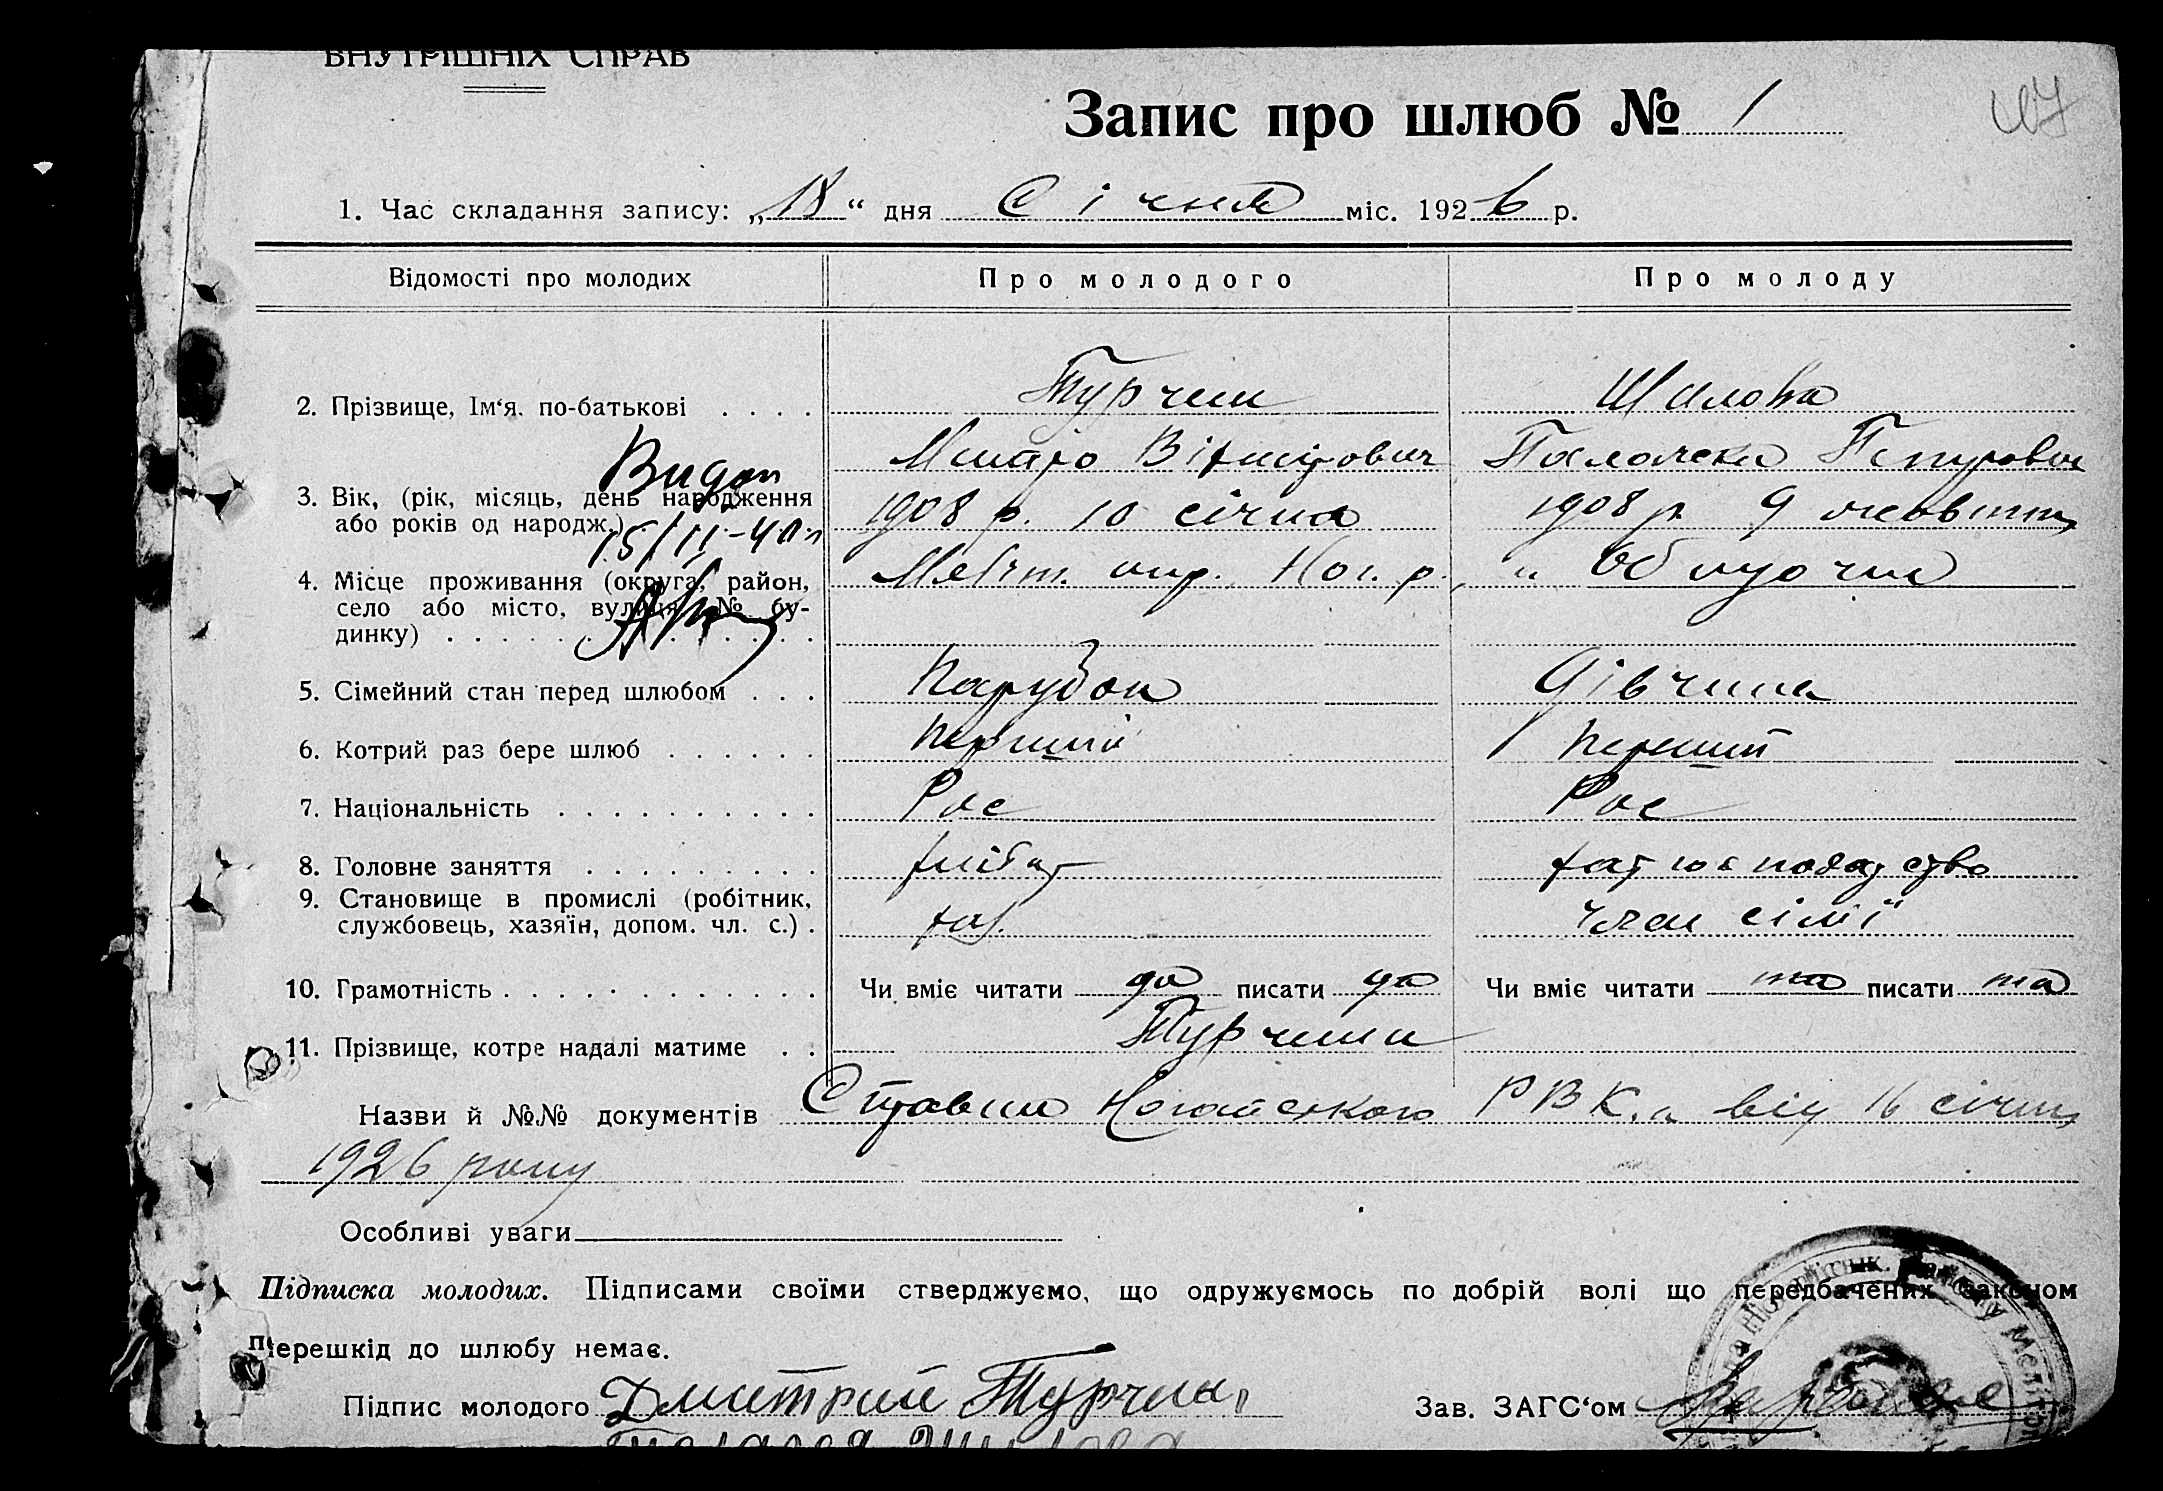 ВНУТРІШНІХ СПРАВ
Запис про шлюб № 1
1. Час складання запису: „18“ дня Січня міс. 1926 р.
Відомості про молодих Про молодого Про молоду
2. Прізвище, Ім‘я, по-батькові . . . . Турчин Шилова
Митро Палажка
3. Вік, (рік, місяць, день народження або років од народж.) 1908 р. 10 січня 1908 р. 9 жовтня
Видан
15/II-40 г
4. Місце проживання (округа, район, село або місто, вулиця, № будинку) . . . Меліт. окр. Ног. р. „ Обиточне
5. Сімейний стан перед шлюбом . . . Парубок Дівчина
6. Котрий раз бере шлюб . . . . . . Перший Перший
7. Національність . . . . . . . . . . Рос Рос
8. Головне заняття . . . . . . . . .
9. Становище в промислі (робітник, службовець, хазяїн, допом. чл. с.) . хаз. член сімї
10. Грамотність . . . . . . . . . . . . Чи вміє читати да писати да Чи вміє читати та писати та
11. Прізвище, котре надалі матиме . . Турчини
Назви й №№ документів Ставка Ногайського РВК.а від 16 січня
1926 року
Особливі уваги
Підписка молодих. Підписами своїми стверджуємо, що одружуємось по добрій волі що передбачених законом
перешкід до шлюбу немає.
Підпис молодого Дмитрий Турчин Зав. ЗАГС‘ом